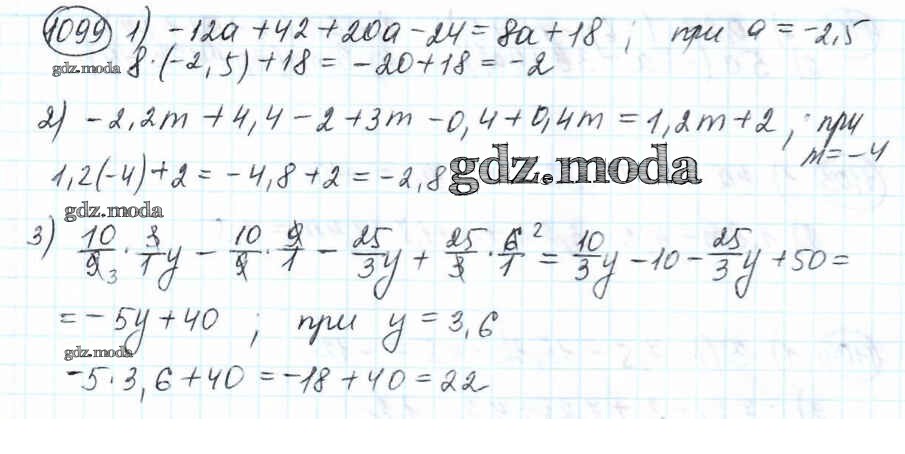 1099 1) -12a + 42 + 20a - 24 = 8a + 18 ; при a = -2,5
gdz.moda 8·(-2,5) + 18 = -20 + 18 = -2
2) -2,2m + 4,4 - 2 + 3m - 0,4 + 0,4m = 1,2m + 2 , при
m = -4
1,2(-4) + 2 = -4,8 + 2 = -2,8 gdz.moda
gdz.moda
3) 10/9 3 · 3/1 y - 10/9 · 9/1 - 25/3 y + 25/3 · 6/1 2 = 10/3 y - 10 - 25/3 y + 50 =
= -5y + 40 ; при y = 3,6
gdz.moda
-5·3,6 + 40 = -18 + 40 = 22